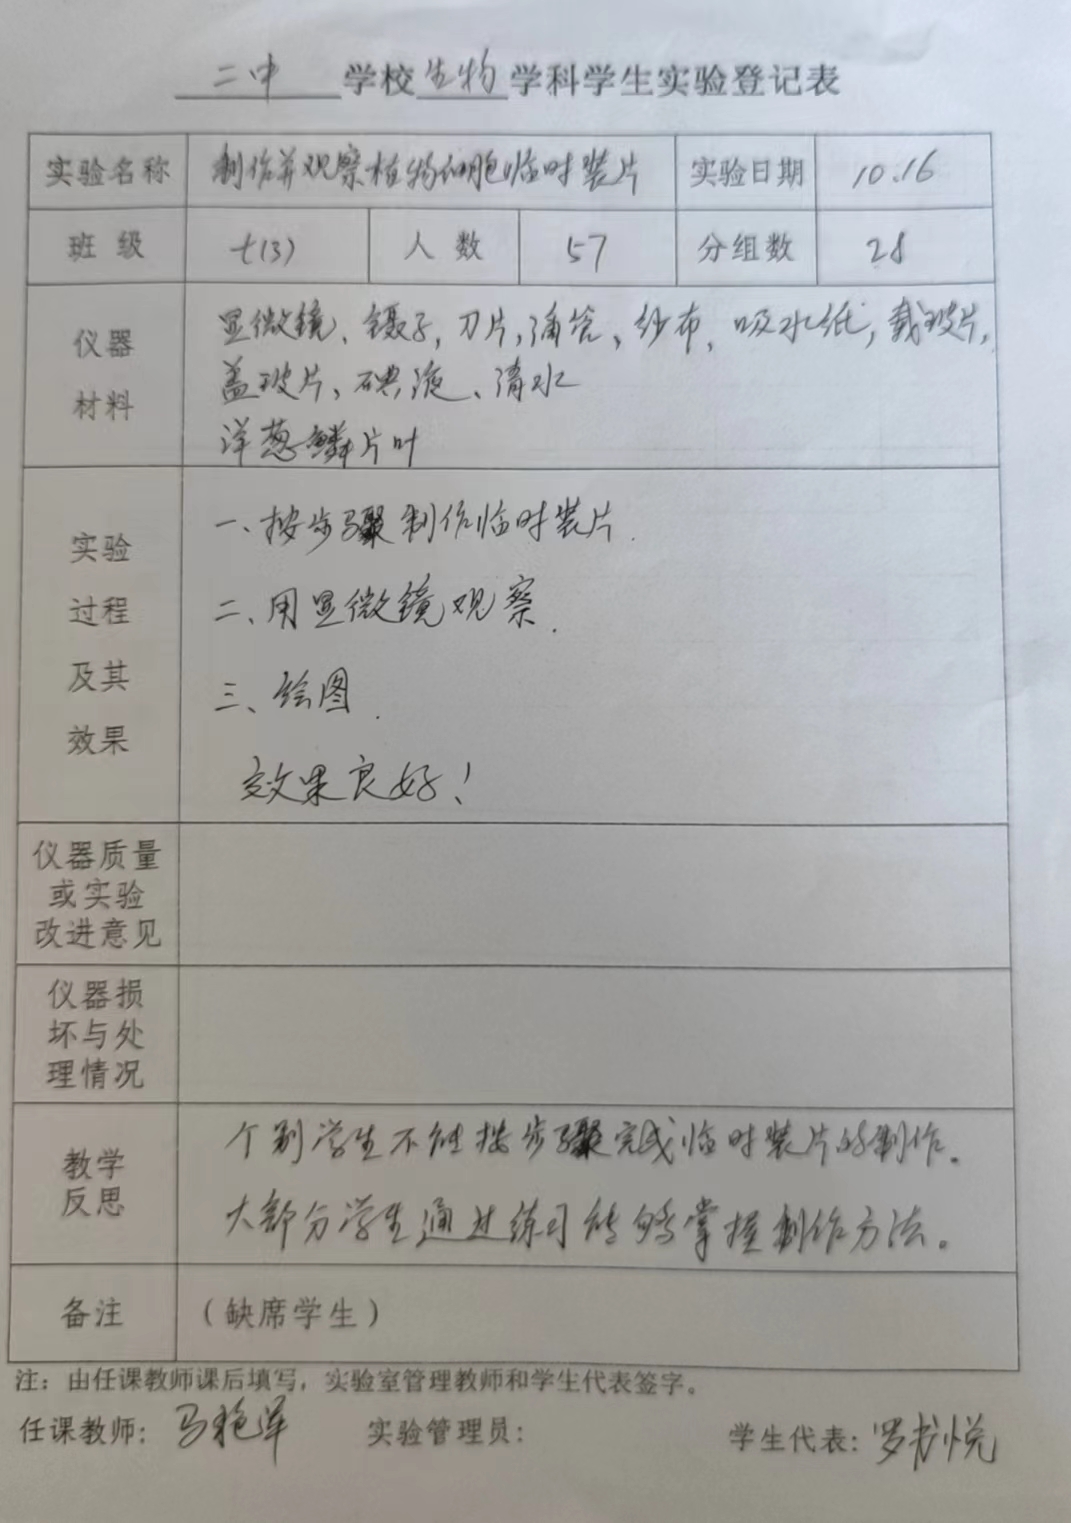 二中 学校 生物 学科学生实验登记表
实验名称 制作并观察植物细胞临时装片 实验日期 10.16
班级 七(3) 人数 57 分组数 28
仪器材料
显微镜、镊子,刀片,滴管、纱布、吸水纸,载玻片,
盖玻片、碘液、清水
洋葱鳞片叶
实验过程及其效果
一、按步骤制作临时装片.
二、用显微镜观察.
三、绘图.
效果良好!
仪器质量
或实验
改进意见
仪器损
坏与处
理情况
教学反思
个别学生不能按步骤完成临时装片的制作。
大部分学生通过练习能够掌握制作方法。
备注 (缺席学生)
注:由任课教师课后填写,实验室管理教师和学生代表签字。
任课教师: 马艳萍 实验管理员: 学生代表: 罗书悦